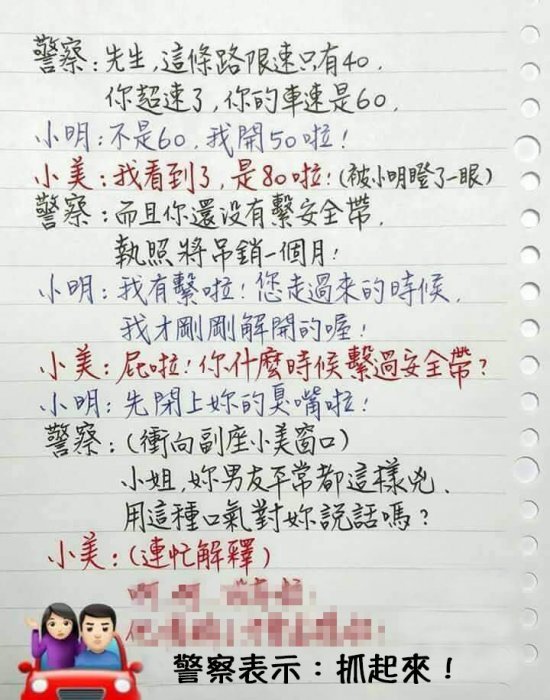 警察：先生,這條路限速只有40.
你超速了,你的車速是60.
小明：不是60,我開50啦！
小美：我看到了,是80啦！(被小明瞪了一眼)
警察：而且你還沒有繫安全帶,
執照將吊銷一個月！
小明：我有繫啦！您走過來的時候,
我才剛剛解開的喔！
小美：屁啦！你什麼時候繫過安全帶？
小明：先閉上妳的臭嘴啦！
警察：(衝向副座小美窗口)
小姐,妳男友平常都這樣兇、
用這種口氣對妳說話嗎？
小美：(連忙解釋)
警察表示：抓起來！